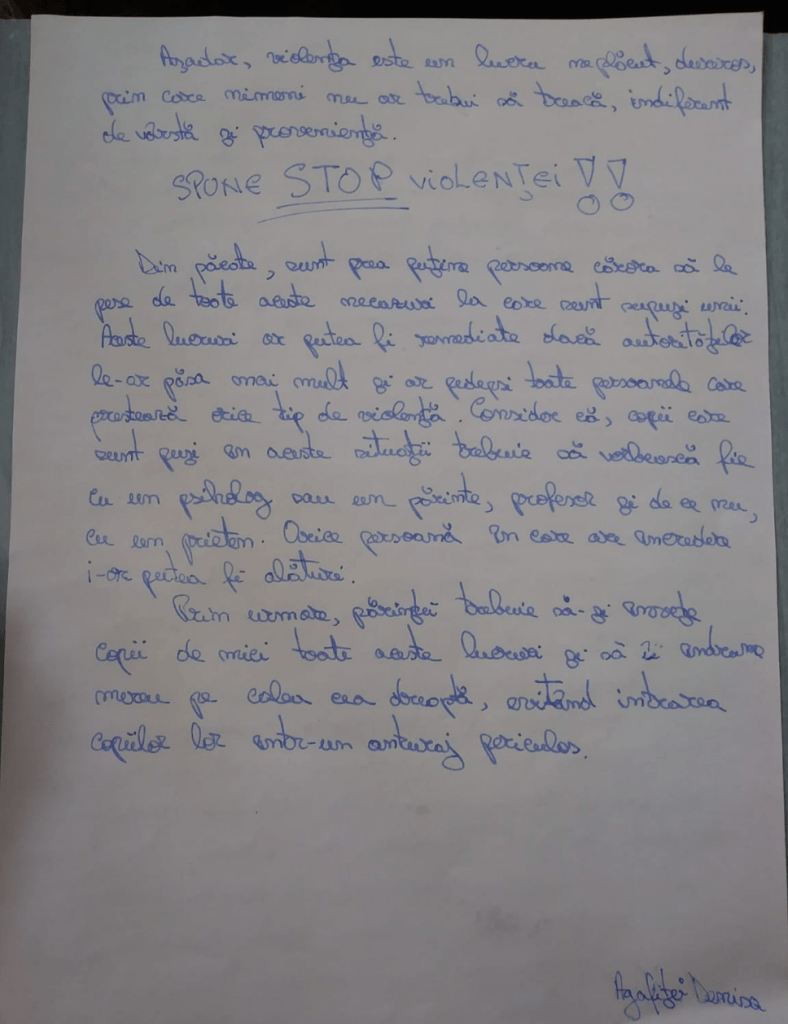 Așadar, violența este un lucru neplăcut, dureros,
prin care nimeni nu ar trebui să treacă, indiferent
de vârstă și proveniență.
SPUNE STOP VIOLENȚEI !!
Din păcate, sunt prea puține persoane cărora să le
pese de toate aceste necazuri la care sunt supuși unii.
Aceste lucruri ar putea fi remediate dacă autorităților
le-ar păsa mai mult și ar pedepsi toate persoanele care
prestează orice tip de violență. Consider că, copii care
sunt puși în aceste situații trebuie să vorbească fie
cu un psiholog sau un părinte, profesor și de ce nu,
cu un prieten. Orice persoană în care are încredere
i-ar putea fi alături.
Prin urmare, părinții trebuie să-și învețe
copii de mici toate aceste lucruri și să îi îndrume
mereu pe calea cea dreaptă, evitând intrarea
copiilor lor într-un anturaj periculos.
Agafiței Denisa